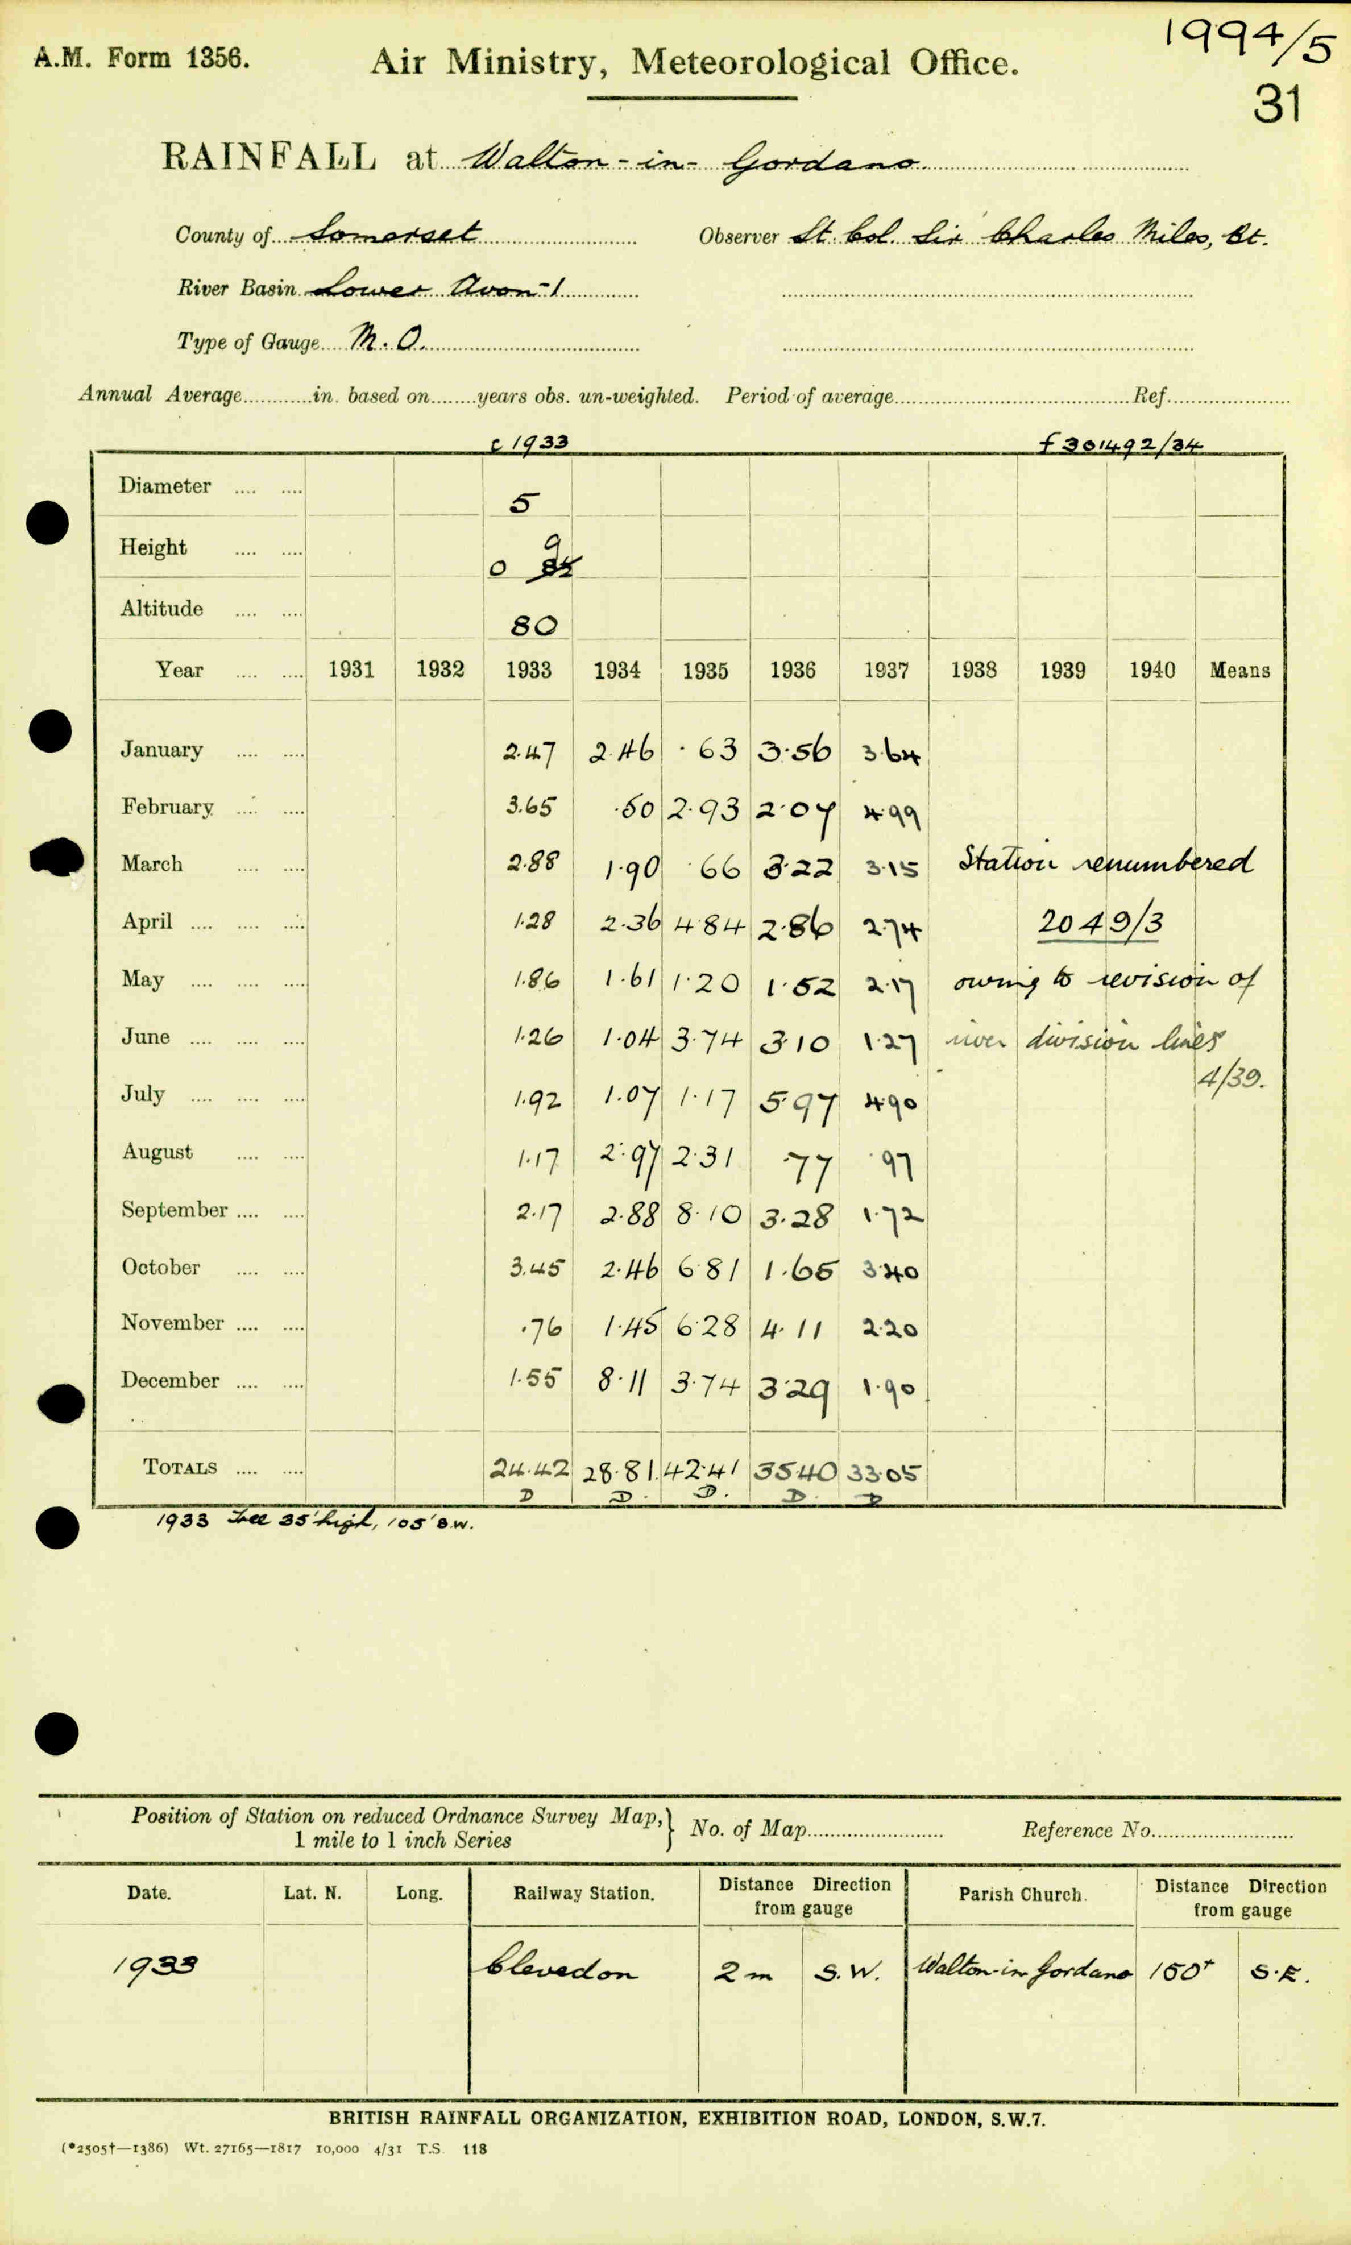 1994/5
A.M. Form 1356. Air Ministry, Meteorological Office.
31
RAINFALL at Walton-in-Gordano
County of Somerset Observer Lt. Col. Sir Charles Miles, Bt.
River Basin Lower Avon-1
Type of Gauge M.O.
Annual Average in. based on years obs. un-weighted. Period of average Ref.
c 1933 f 301492/34
Diameter 5
Height 0 9
Altitude 80
Year 1931 1932 1933 1934 1935 1936 1937 1938 1939 1940 Means
January 2.47 2.46 .63 3.56 3.64
February 3.65 .50 2.93 2.07 4.99
March 2.88 1.90 .66 3.22 3.15 Station renumbered
April 1.28 2.36 4.84 2.86 2.74 2049/3
May 1.86 1.61 1.20 1.52 2.17 owing to revision of
June 1.26 1.04 3.74 3.10 1.27 river division lines
4/39.
July 1.92 1.07 1.17 5.97 4.90
August 1.17 2.97 2.31 .77 .97
September 2.17 2.88 8.10 3.28 1.72
October 3.45 2.46 6.81 1.65 3.40
November .76 1.45 6.28 4.11 2.20
December 1.55 8.11 3.74 3.29 1.90
TOTALS 24.42 28.81 42.41 35.40 33.05
D D. D. D. D
1933 Tree 35' high, 105' S.W.
Position of Station on reduced Ordnance Survey Map,} No. of Map Reference No.
1 mile to 1 inch Series
Date. Lat. N. Long. Railway Station. Distance Direction from gauge Parish Church. Distance Direction from gauge
1933 Clevedon 2 m S.W. Walton-in-Gordano 150+ S.E.
BRITISH RAINFALL ORGANIZATION, EXHIBITION ROAD, LONDON, S.W.7.
(*2505†—1386) Wt. 27165—1817 10,000 4/31 T.S. 118